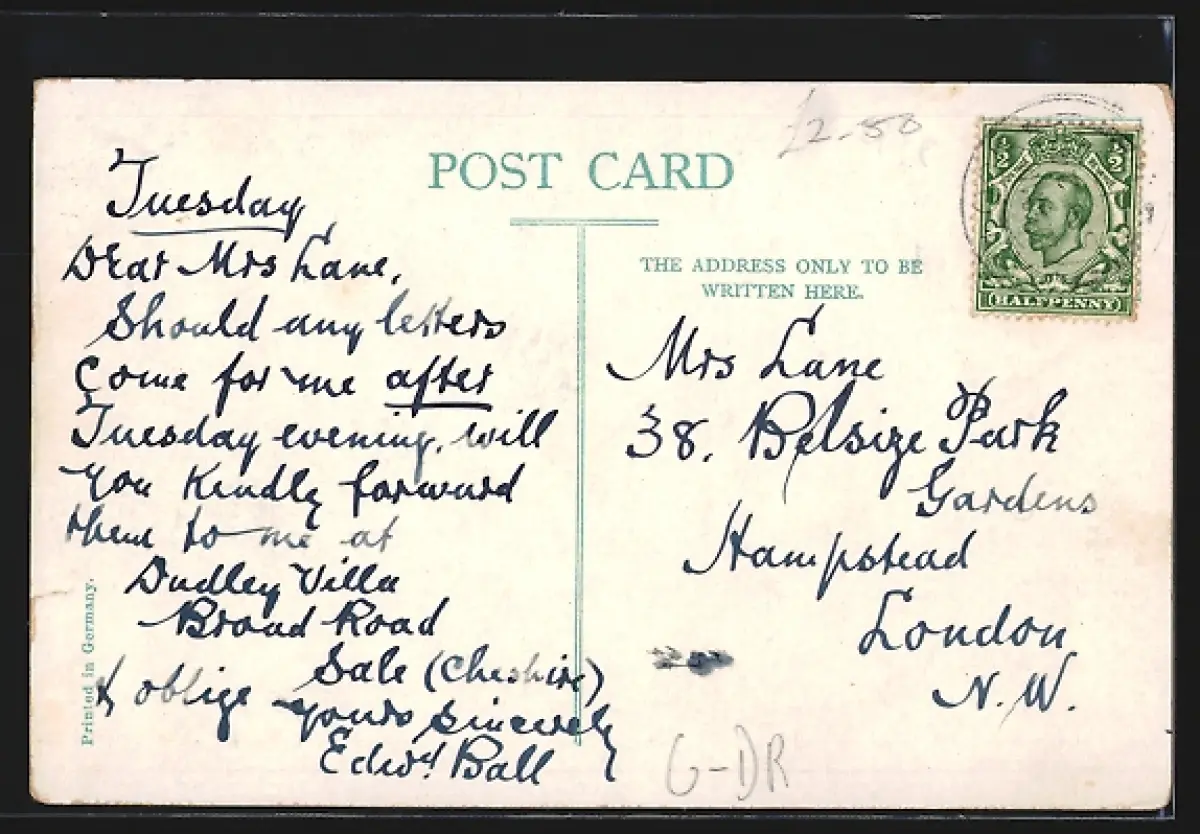 £2-50
POST CARD
Tuesday
Dear Mrs Lane,
Should any letters
Come for me after
Tuesday evening, will
you kindly forward
them to me at
Dudley Villa
Broad Road
Sale (Cheshire)
& oblige
yours sincerely
Edwd. Ball
Printed in Germany.
THE ADDRESS ONLY TO BE
WRITTEN HERE.
½ ½
HALFPENNY
Mrs Lane
38. Belsize Park
Gardens
Hampstead
London
N.W.
G-DR